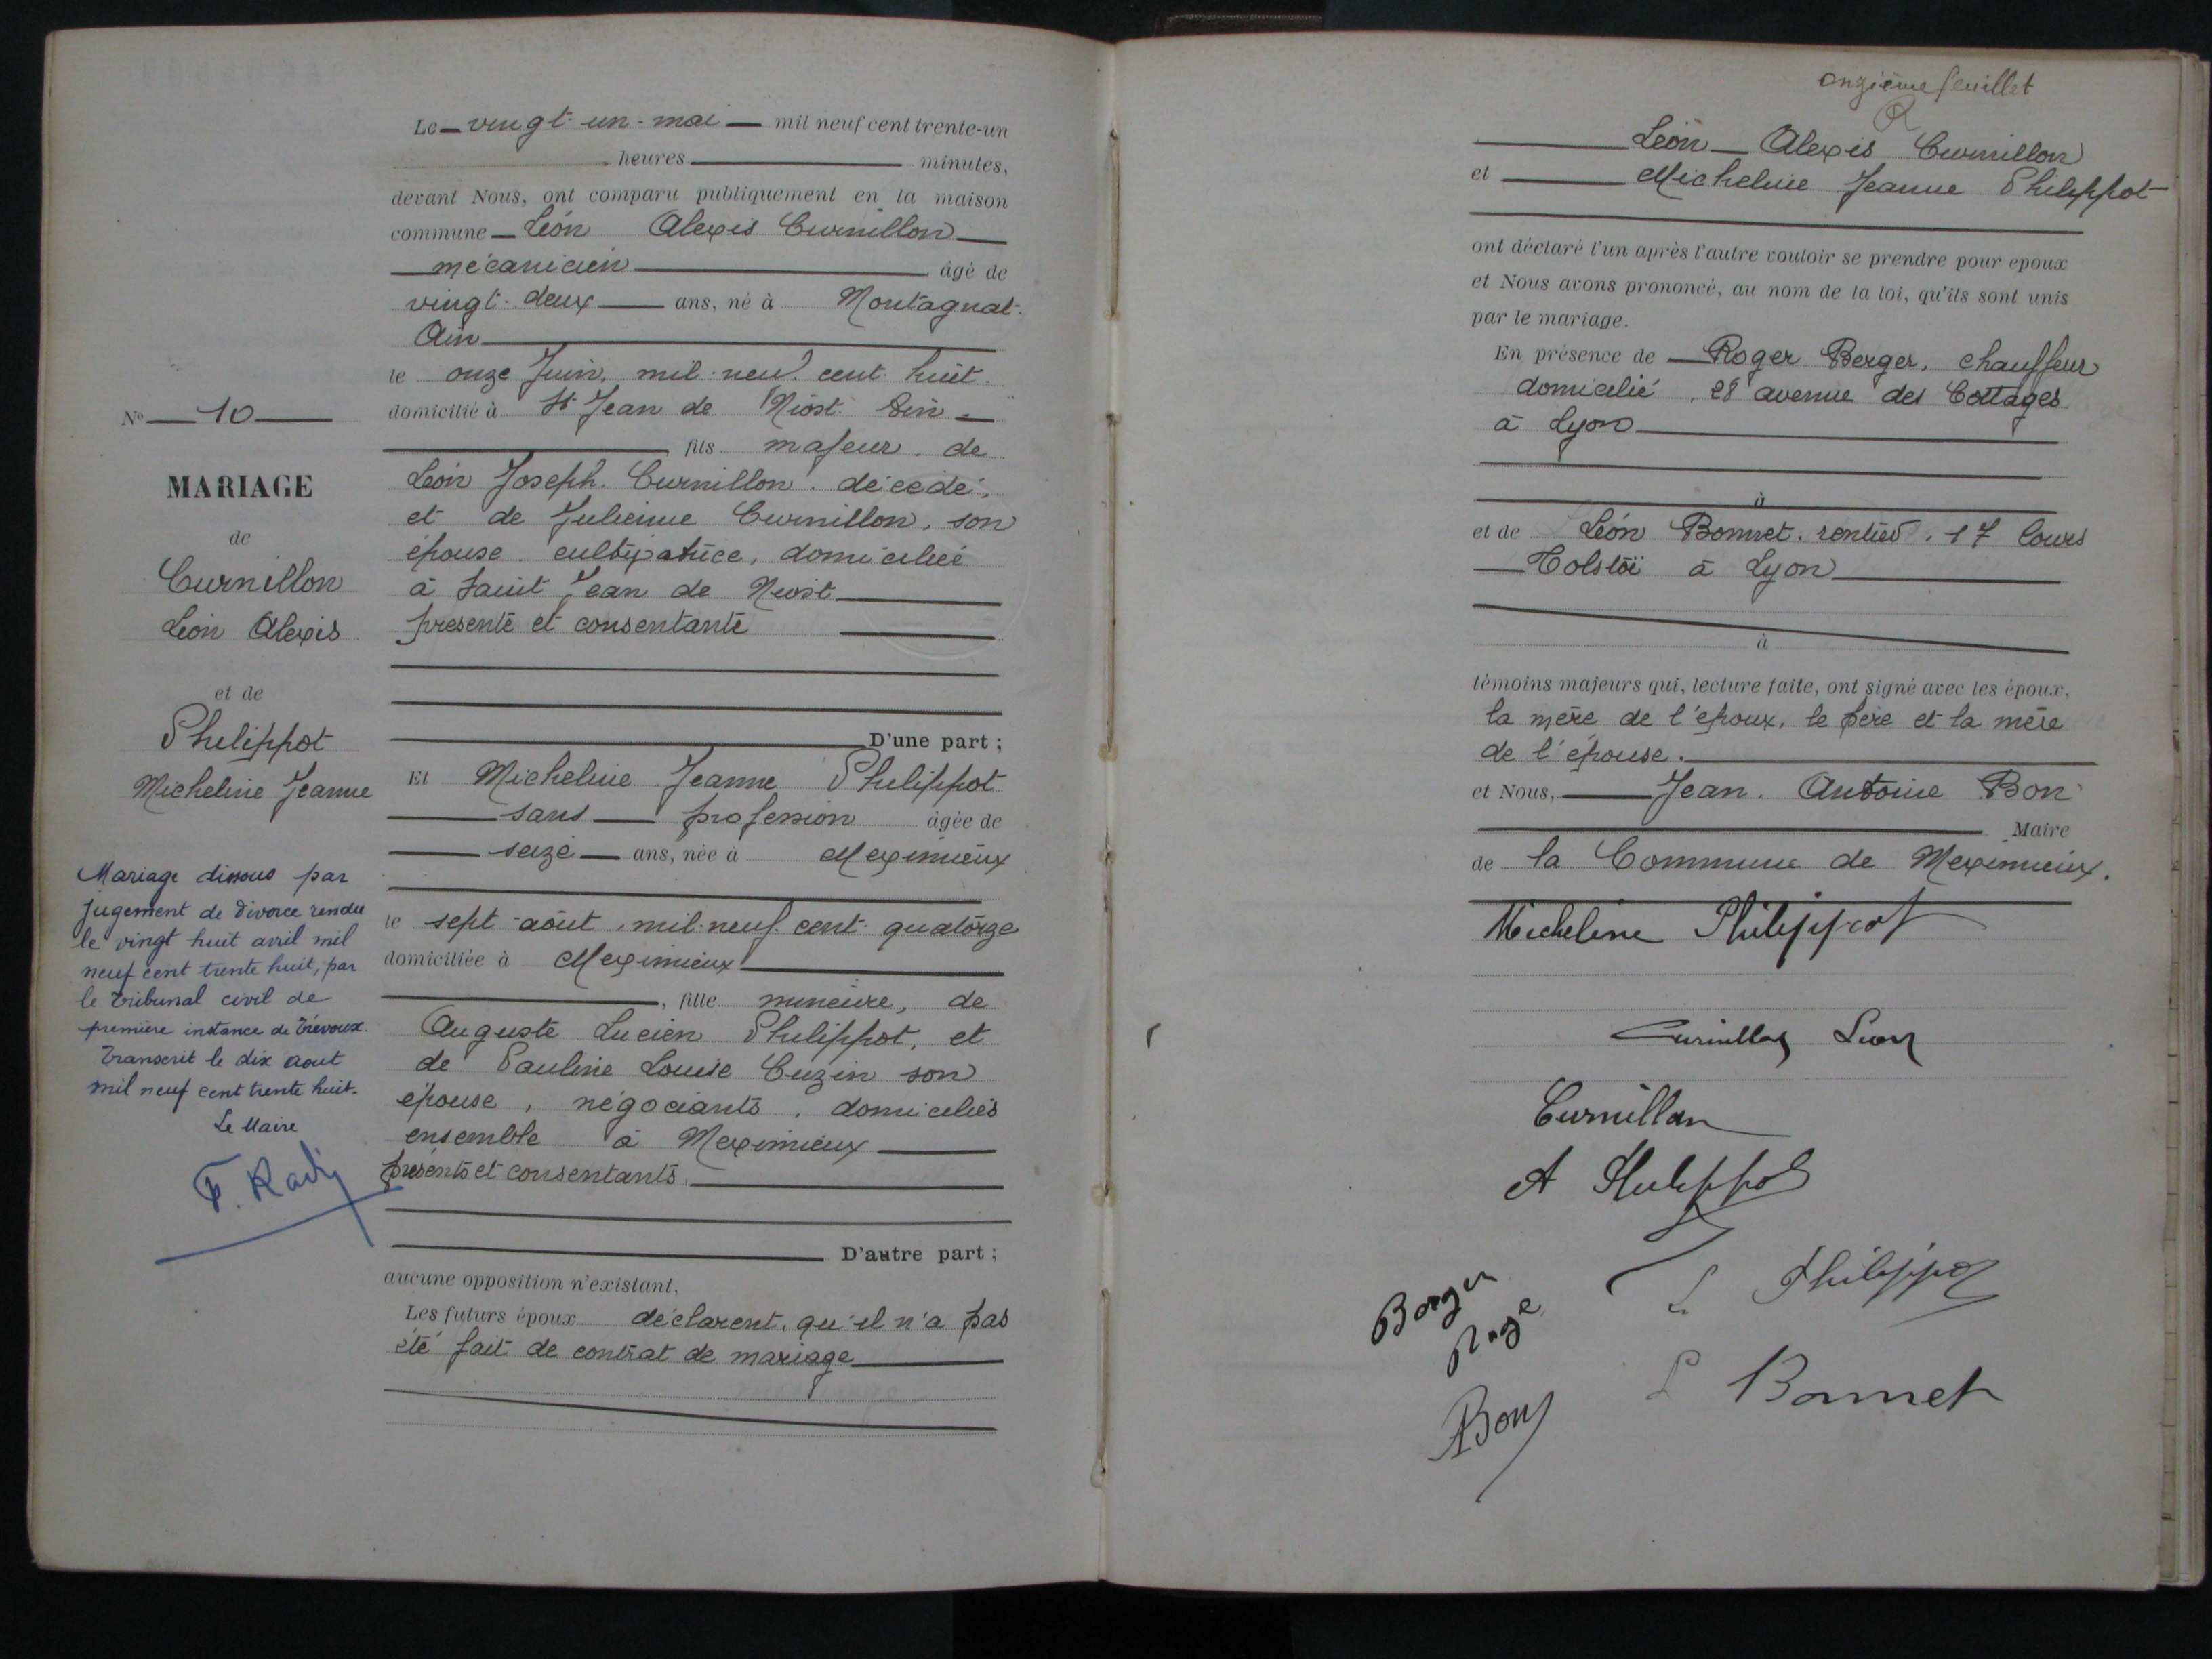 Le vingt-un-mai mil neuf cent trente-un
heures minutes,
devant Nous, ont comparu publiquement en la maison
commune Léon Alexis Curnillon
mécanicien âgé de
vingt-deux ans, né à Montagnat-
Ain
le onze Juin, mil-neuf cent huit
domicilié à St Jean de Niost Ain
fils majeur de
Léon Joseph Curnillon décédé,
et de Julienne Curnillon, son
épouse cultivatrice, domiciliée
à Saint Jean de Niost
présente et consentante
D'une part ;
Et Micheline Jeanne Philippot
sans profession âgée de
seize ans, née à Meximieux
le sept-août, mil-neuf-cent-quatorze
domiciliée à Meximieux
, fille mineure, de
Auguste Lucien Philippot, et
de Pauline Louise Cuzin son
épouse, négociants, domiciliés
ensemble à Meximieux
présents et consentants.
D'autre part ;
aucune opposition n'existant,
Les futurs époux déclarent, qu'il n'a pas
été fait de contrat de mariage
No 10
MARIAGE
de
Curnillon
Léon Alexis
et de
Philippot
Micheline Jeanne
Mariage dissous par
jugement de divorce rendu
le vingt huit avril mil
neuf cent trente huit, par
le Tribunal civil de
première instance de Trévoux.
Transcrit le dix août
mil neuf cent trente huit.
Le Maire
onzième feuillet
Léon Alexis Curnillon
et Micheline Jeanne Philippot
ont déclaré l'un après l'autre vouloir se prendre pour époux
et Nous avons prononcé, au nom de la loi, qu'ils sont unis
par le mariage.
En présence de Roger Berger, chauffeur
domicilié, 28 avenue des Cottages
à Lyon
à
et de Léon Bonnet, rentier, 17 Cours
Tolstoï à Lyon
à
témoins majeurs qui, lecture faite, ont signé avec les époux,
la mère de l'époux, le père et la mère
de l'épouse.
et Nous, Jean Antoine Bon
Maire
de la Commune de Meximieux.
Micheline Philippot
Curnillon Léon
Curnillon
A Philippot
L Philippot
Berger
Roger
L Bonnet
ABon